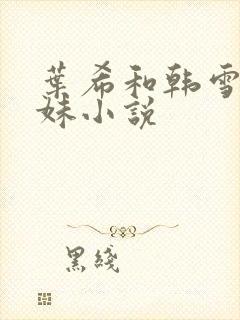 葉希和韓雪
妹小說
黑綫